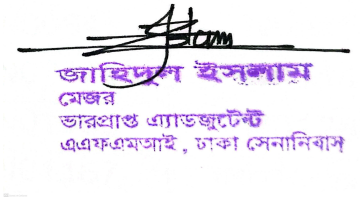 জাহিদুল ইসলাম
মেজর
ভারপ্রাপ্ত এ্যাডজুটেন্ট
এএফএমআই, ঢাকা সেনানিবাস